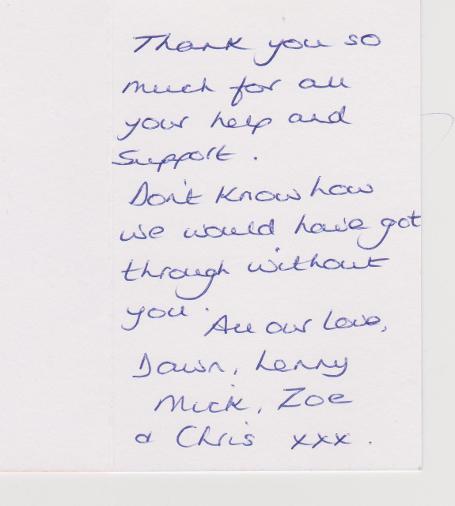 Thank you so
much for all
your help and
Support.
Don't know how
we would have got
through without
you.
All our love,
Dawn, Lenny
Mick, Zoe
& Chris xxx.